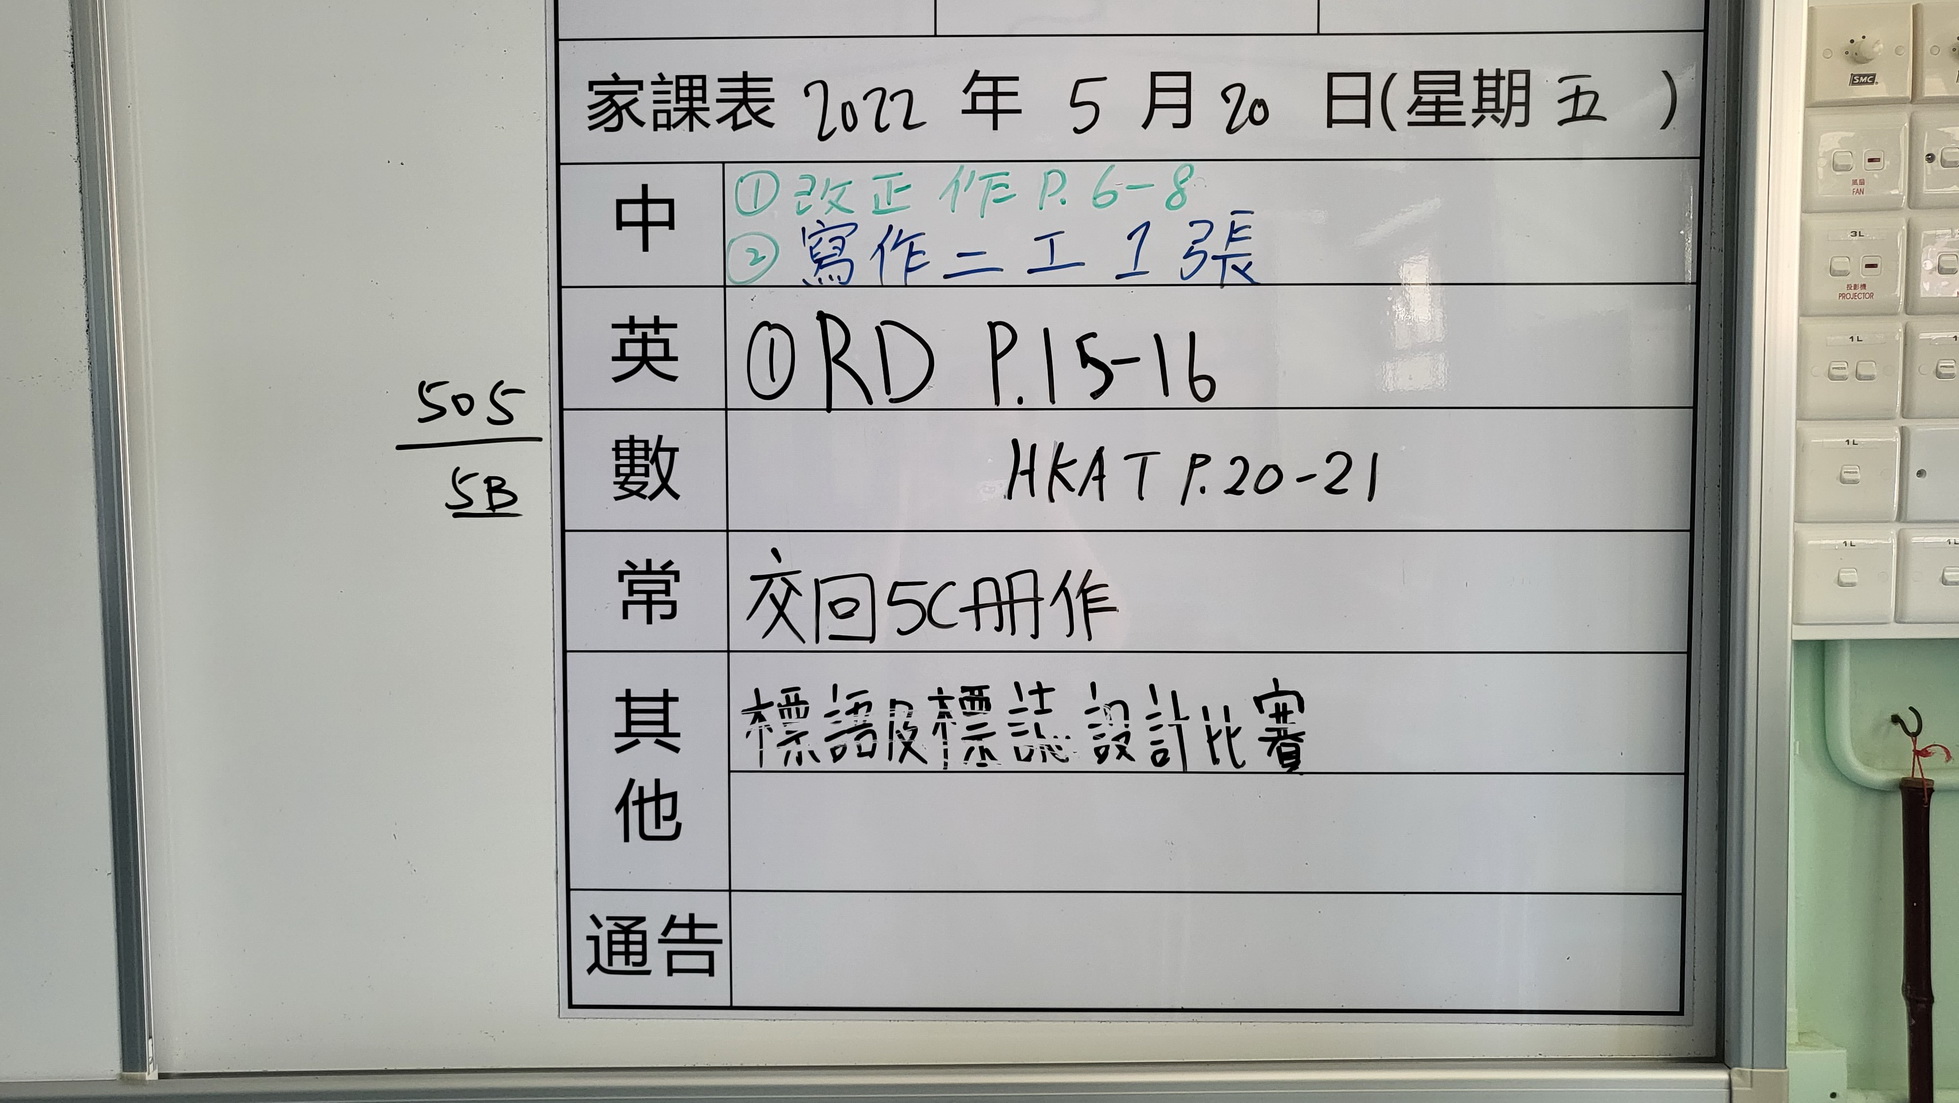 家課表 2022 年 5 月 20 日(星期 五 )
中
① 改正 作 P. 6-8
② 寫作二工 1 張
英
① RD P.15-16
數
HKAT P.20-21
常
交回5C冊作
其他
標語及標誌設計比賽
通告
505
5B
SMC
風扇
FAN
3L
投影機
PROJECTOR
1L
1L
1L
1L